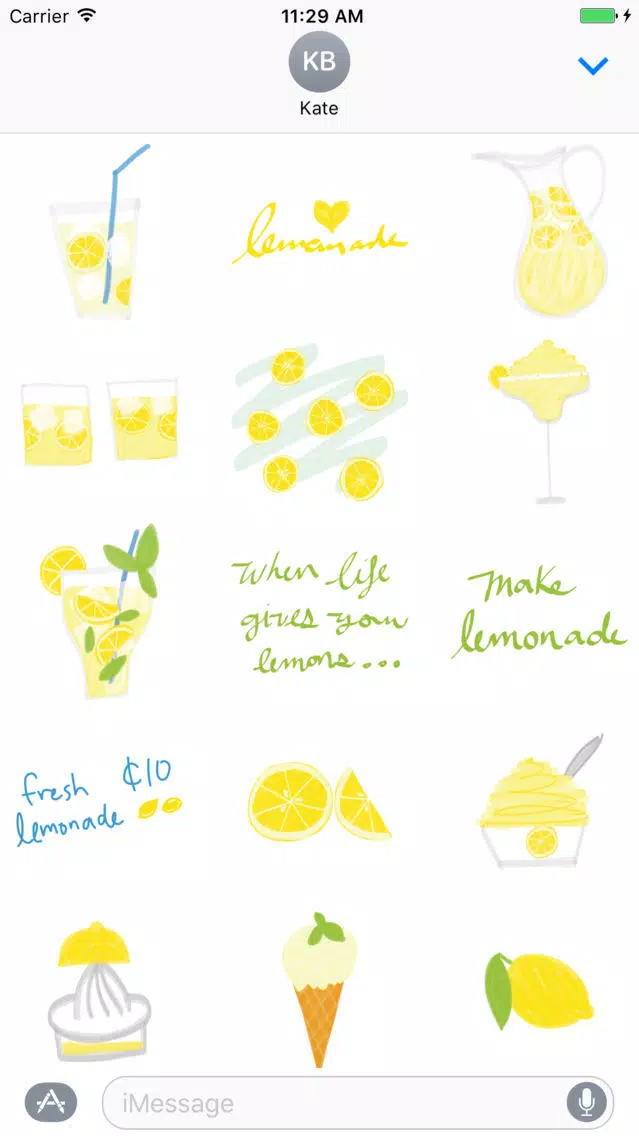 Carrier 11:29 AM
KB
Kate
lemonade
When life
gives you
lemons...
Make
lemonade
fresh ¢10
lemonade
iMessage